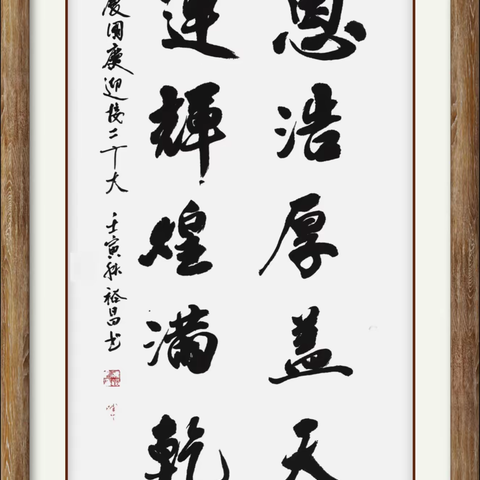 恩浩厚盖天
運輝煌满乾
度国慶迎接二十大 壬寅秋裕昌书